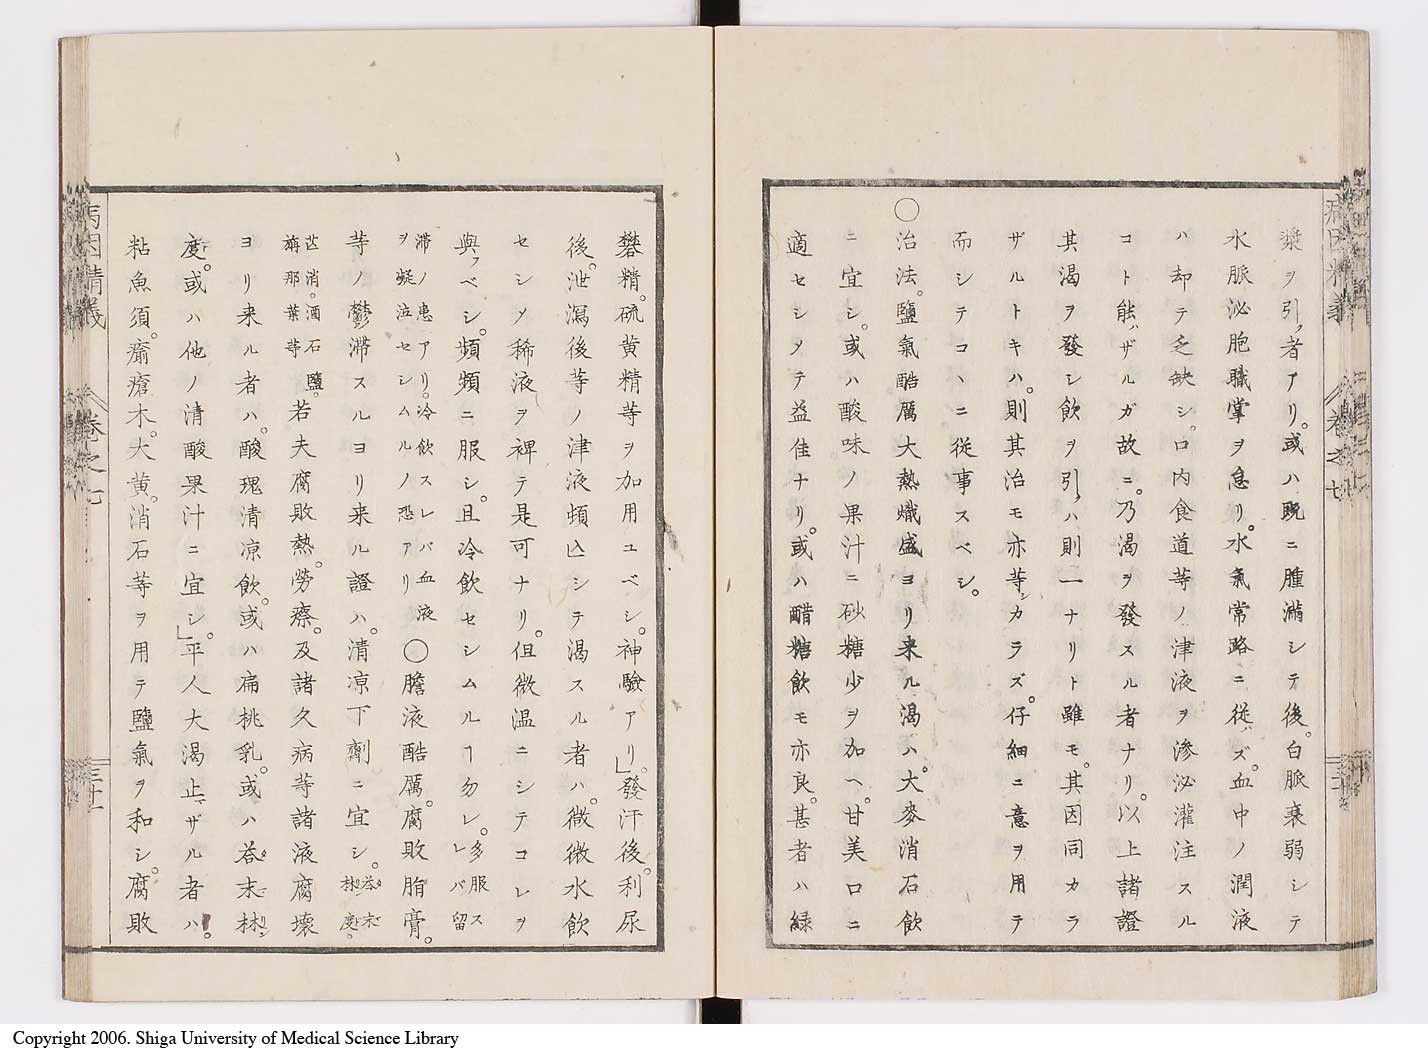 漿ヲ引ク者アリ。或ハ既ニ腫滿シテ後。白脈衰弱シテ
水脈泌胞職掌ヲ息リ。水氣常路ニ從ハズ。血中ノ潤液
ハ却テ乏缺シ。口内食道等ノ津液ヲ滲泌灌注スル
コト能ハザルガ故ニ。乃渇ヲ發スル者ナリ。以上諸證
其渇ヲ發シ飲ヲ引クハ則一ナリト雖モ。其因同カラ
ザルトキハ。則其治モ亦等シカラズ。仔細ニ意ヲ用テ
而シテコヽニ從事スベシ。
〇治法。鹽氣酷厲大熱熾盛ヨリ来ル渇ハ。大麥消石飲
ニ宜シ。或ハ酸味ノ果汁ニ砂糖少ヲ加ヘ。甘美口ニ
適セシメテ益佳ナリ。或ハ醋糖飲モ亦良。甚者ハ緑
礬精。硫黄精等ヲ加用ユベシ。神驗アリ。」發汗後。利尿
後。泄瀉後等ノ津液頓亾シテ渇スル者ハ。微微水飲
セシメ稀液ヲ裨テ是可ナリ。但微温ニシテコレヲ
與フベシ。頻頻ニ服シ。且冷飲セシムルヿ勿レ。多服スレバ留
滞ノ患アリ。冷飲スレバ血液ヲ凝泣セシムルノ恐アリ〇膽液酷厲。腐敗脂膏。
等ノ鬱滞スルヨリ来ル證ハ。清凉下劑ニ宜シ。荅末林度。
芒消。酒石鹽。旃那葉等若夫腐敗熱。勞瘵。及諸久病等諸液腐壊
ヨリ来ル者ハ。酸瑰清凉飲。或ハ扁桃乳。或ハ荅末林
度。或ハ他ノ清酸果汁ニ宜シ」。平人大渇止マザル者ハ。
粘魚須。癤瘡木。大黄。消石等ヲ用テ鹽氣ヲ和シ。腐敗
病因精義
巻之七
三十一
Copyright 2006. Shiga University of Medical Science Library